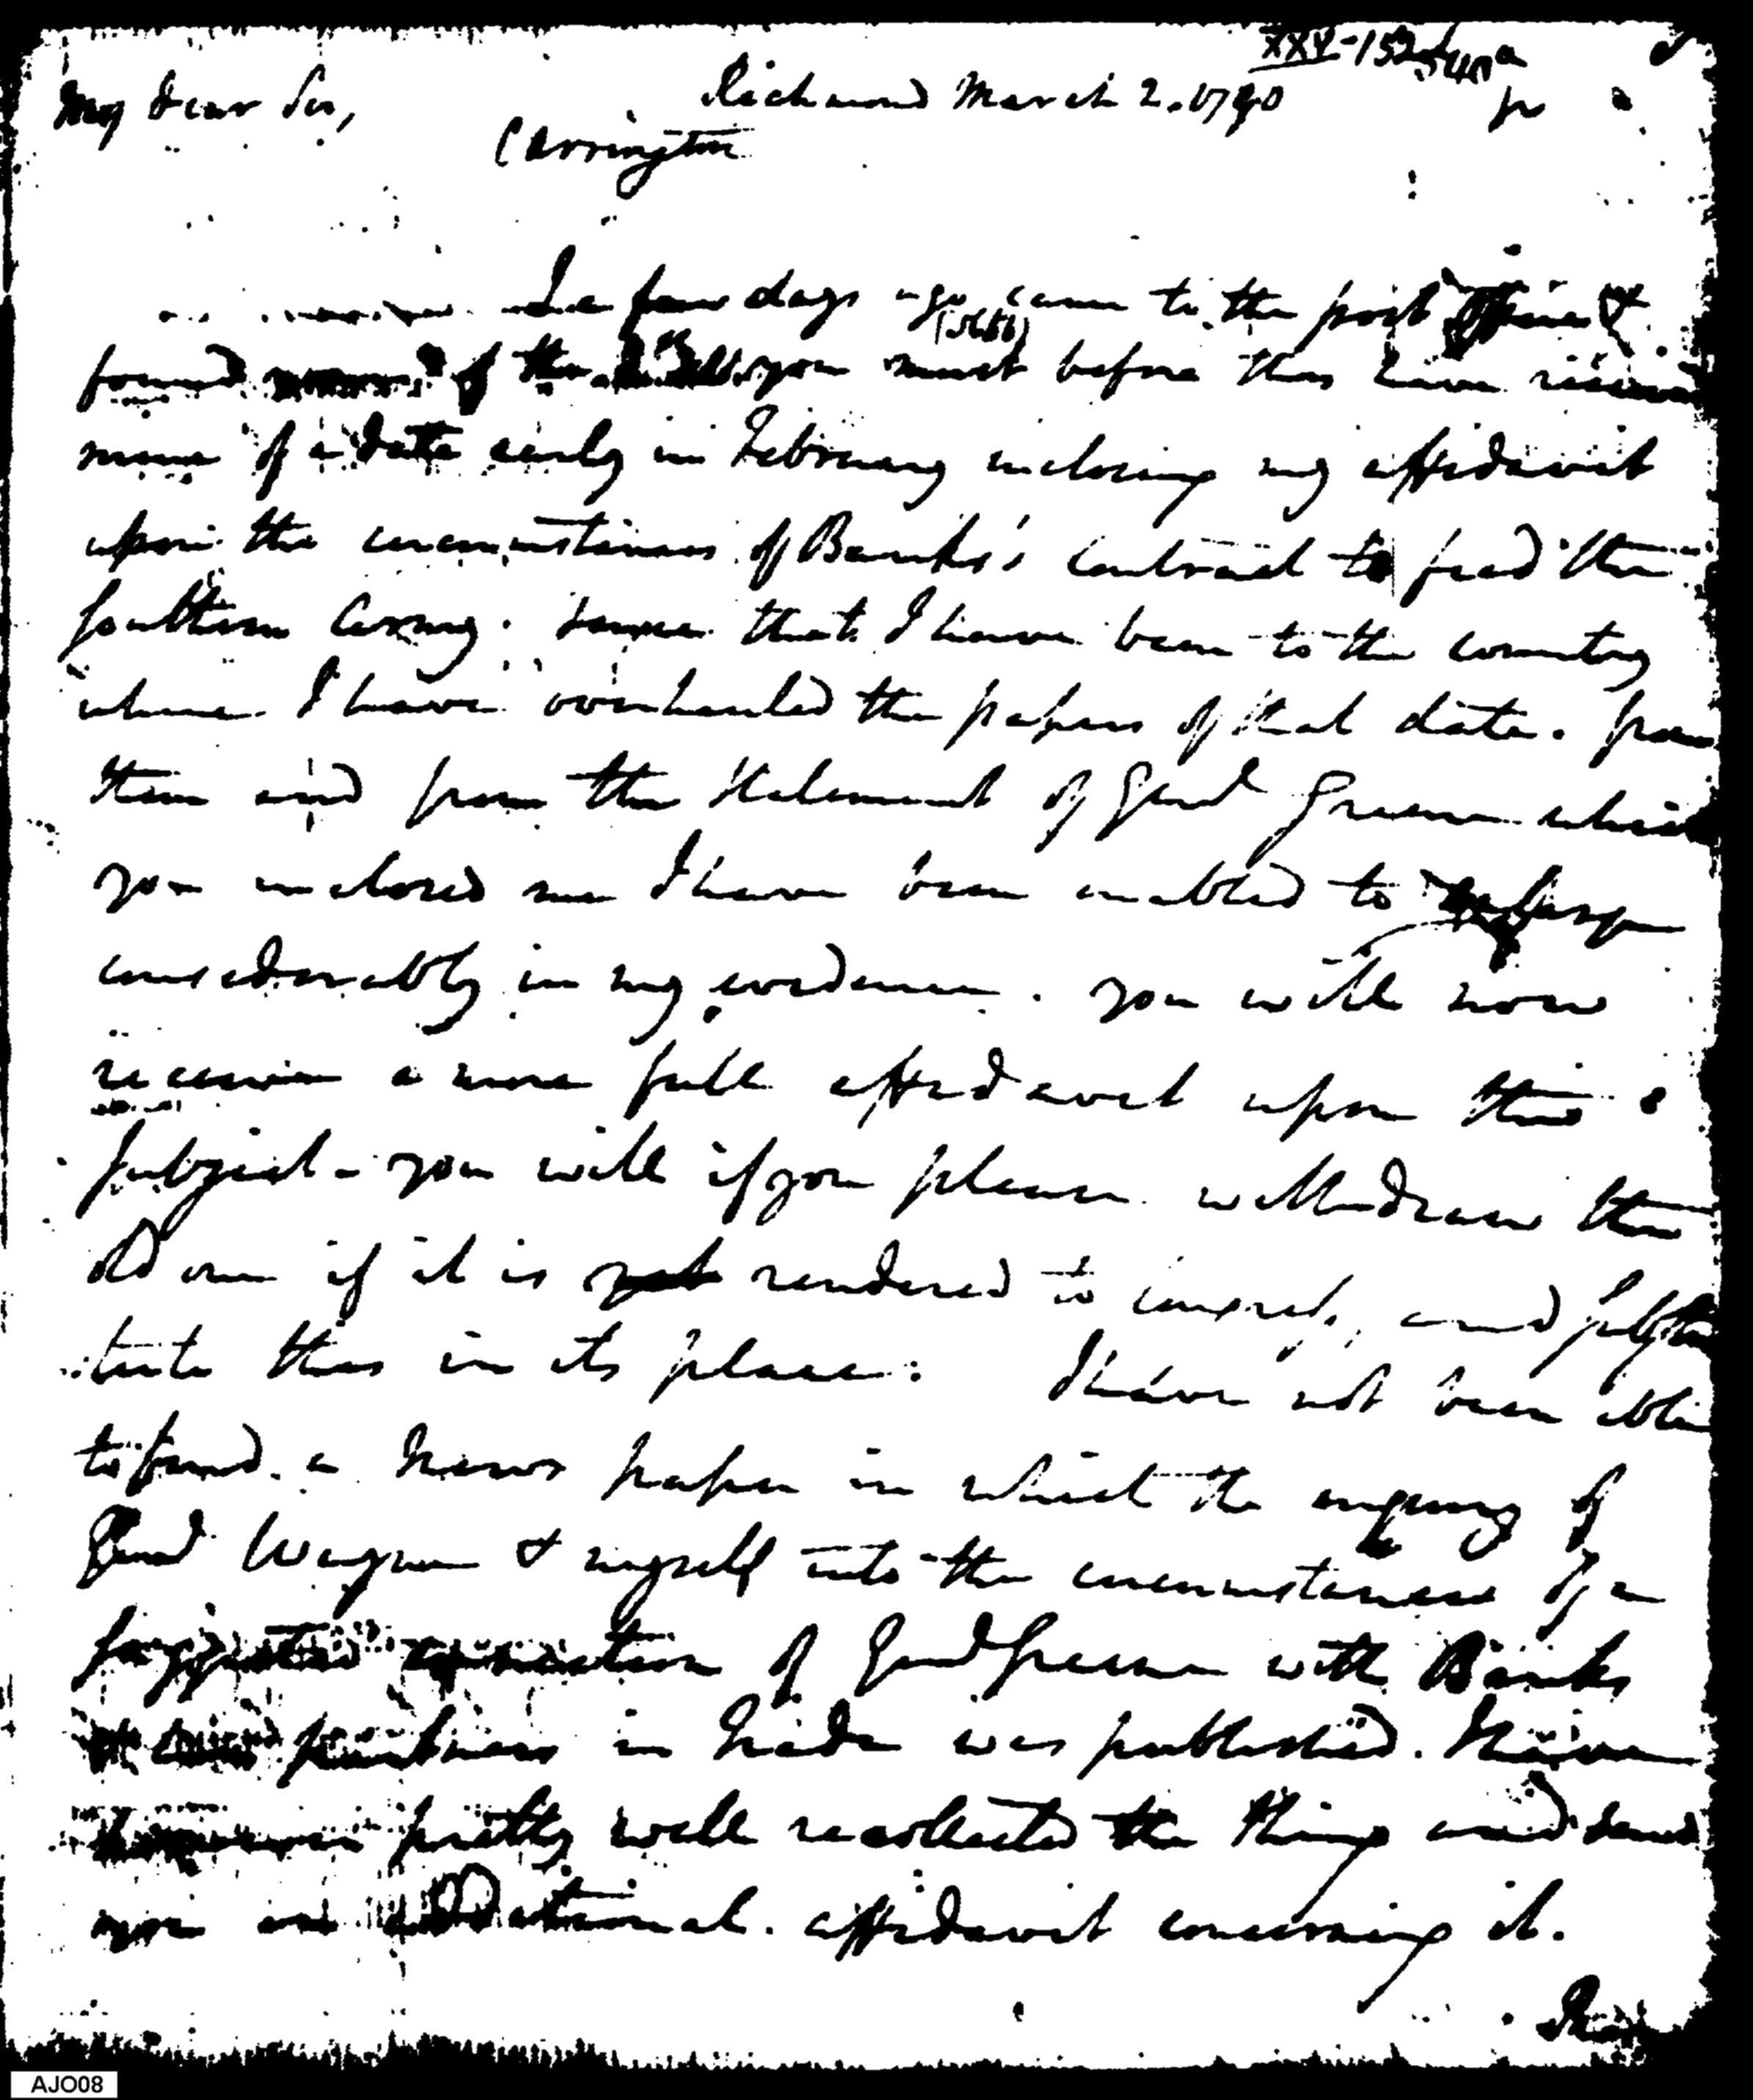 XXV-152
My dear Sir, Richmond March 2. 1790
Carrington
I a few days ago came to the post office &
found of the you must before this have received
mine of a date early in February inclosing my affidavit
upon the circumstances of Banks's Contract to feed the
southern Army. since that I have been to the country
where I have overhauled the papers of that date. from
them and from the statement of Genl Greene which
you inclosed me I have been enabled to
considerably in my evidence. you will now
receive a more full affidavit upon this
subject - you will if you please withdraw the
old one if it is not rendered to Congress, and substi
tute this in its place. I have not been able
to find a News paper in which the enquiry of
Genl Wayne & myself into the circumstance of a
suggested connection of Genl Greene with Banks
partners in trade was published. I have
however pretty well recollected the thing and send
you an additional affidavit concerning it.
AJO08